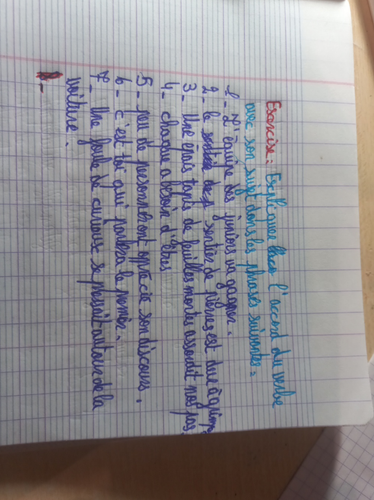 Exercice : Expliquer l'accord du verbe
avec son sujet dans les phrases suivantes :
1- L'équipe des juniors va gagner.
2- le sentier de pierres est dur à grimp
3- Une épais tapis de feuilles mortes assourdit nos pas
4- chaque a besoin d'être
5- peu de personnes ont apprécié son discours.
6- c'est toi qui partira le premier.
7- Une foule de curieux se pressait autour de la
voiture.
8-